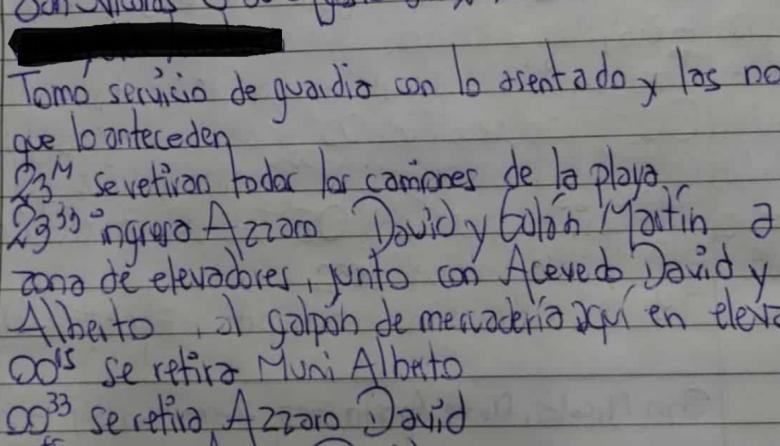 San Nicolás
Tomo servicio de guardia con lo asentado y las no
que lo anteceden
23 se retiran todos los camiones de la playa
23³³ ingresa Azzaro David y Galán Martín a
zona de elevadores, junto con Acevedo, David y
Alberto, al galpón de mercadería aquí en eleva
00¹⁵ se retira Muni Alberto
00³³ se retira Azzaro David